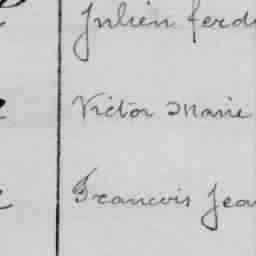 Julien ferd
Victor Marie
Francois Jea